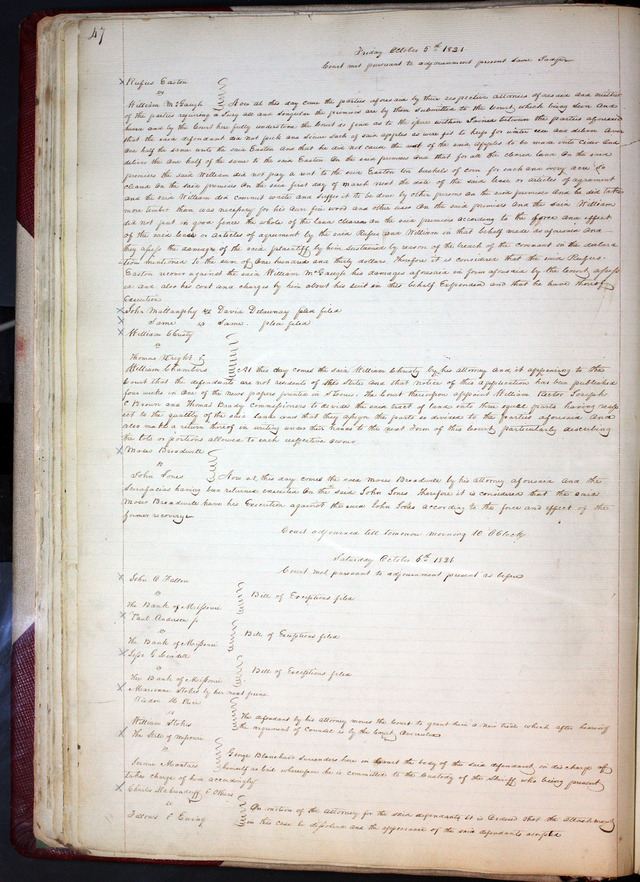 47
Friday October 5th 1821
Court met pursuant to adjournment present same Judges
Rufus Easton
vs
William McGaugh Now at this day came the parties aforesaid by their respective attornies aforesaid and neither
of the parties requiring a Jury all and singular the premises are by them submitted to the Court, which being seen and
heard and by the Court here fully understood the Court so far as to the issue within Joined between the parties aforesaid
that the said defendant did not pick out and secure such of said apples as were fit to keep for winter use and deliver
one half the same unto the said Easton and that he did not cause the rest of the apples to be made into Cider and
deliver the one half of the same to the said Easton on the said premises and that for all the cleared land on the said
premises the said William did not pay a rent to the said Easton ten bushels of corn for each and every acre
cleared on the said premises on the said first day of March next the date of the said lease or articles of agreement
and the said William did commit waste and suffer it to be done by other persons on the said premises and he did take
more timber than was necessary for his own fire wood and other uses on the said premises and the said William
did not put in good fence the whole of the land cleared on the said premises according to the force and effect
of the said lease or articles of agreement by the said Rufus and William in that behalf made as aforesaid and
they assess the damage of the said plaintiff by him sustained by reason of the breach of the covenant in the declara
tion mentioned to the sum of One hundred and thirty dollars Therefore it is considered that the said Rufus
Easton recover against the said William McGaugh his damages aforesaid in form aforesaid by the Court assess
ed and also his cost and charges by him about his suit in this behalf Expended and that he have thereof
Execution
John Mullanphy vs David Delaunay plea filed
Same vs Same plea filed
William Christy
vs
Thomas Wright &
William Chambers At this day comes the said William Christy by his attorney and it appearing to the
Court that the defendants are not residents of this State and that notice of this application has been published
four weeks in one of the news papers printed in St Louis. The Court thereupon appoint William Rector Joseph
C Brown and Thomas Brady Commissioners to divide the said tract of land into three equal parts having resp
ect to the quality of the said lands and that they assign the parts so divided to the parties aforesaid and
also make a return thereof in writing under their hands to the next Term of this Court, particularly describing
the lots or portions allowed to each respective owner
Moses Broadwell
vs
John Jones Now at this day comes the said Moses Broadwell by his attorney aforesaid and the
Scirefacias having been returned executed on the said John Jones therefore it is considered that the said
Moses Broadwell have his Execution against the said John Jones according to the force and effect of the
former recovery
Court adjourned till tomorrow morning 10 OClock
Saturday October 6th 1821
Court met pursuant to adjournment present as before
John O Fallon
vs
The Bank of Missouri Bill of Exceptions filed
Paul Anderson jr
vs
The Bank of Missouri Bill of Exceptions filed
Jesse G Lindell
vs
The Bank of Missouri Bill of Exceptions filed
Marianne Stokes by her next friend
vs
William Stokes The defendant by his attorney moves the Court to grant him a new trial which after hearing
the argument of Counsel is by the Court overruled
The State of Missouri
vs
George Blanchard surrenders here in Court the body of the said defendant in discharge of
himself as bail whereupon he is committed to the Custody of the Sheriff who being present
takes charge of him accordingly
Charles & Others
vs
Fallons & Ewing On motion of the Attorney for the said defendants it is Ordered that the attachment
in this case be dissolved and the appearance of the said defendants accepted